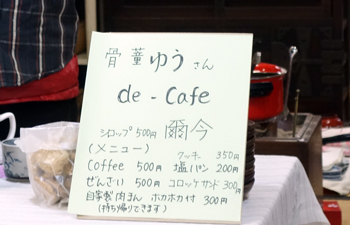 骨董ゆうさん
de - Cafe
シロップ 500円 爾今
(メニュー) クッキー 350円
Coffee 500円 塩パン 200円
ぜんざい 500円 コロッケサンド 300円
自家製肉まん ホカホカ付 300円
(持ち帰りできます)